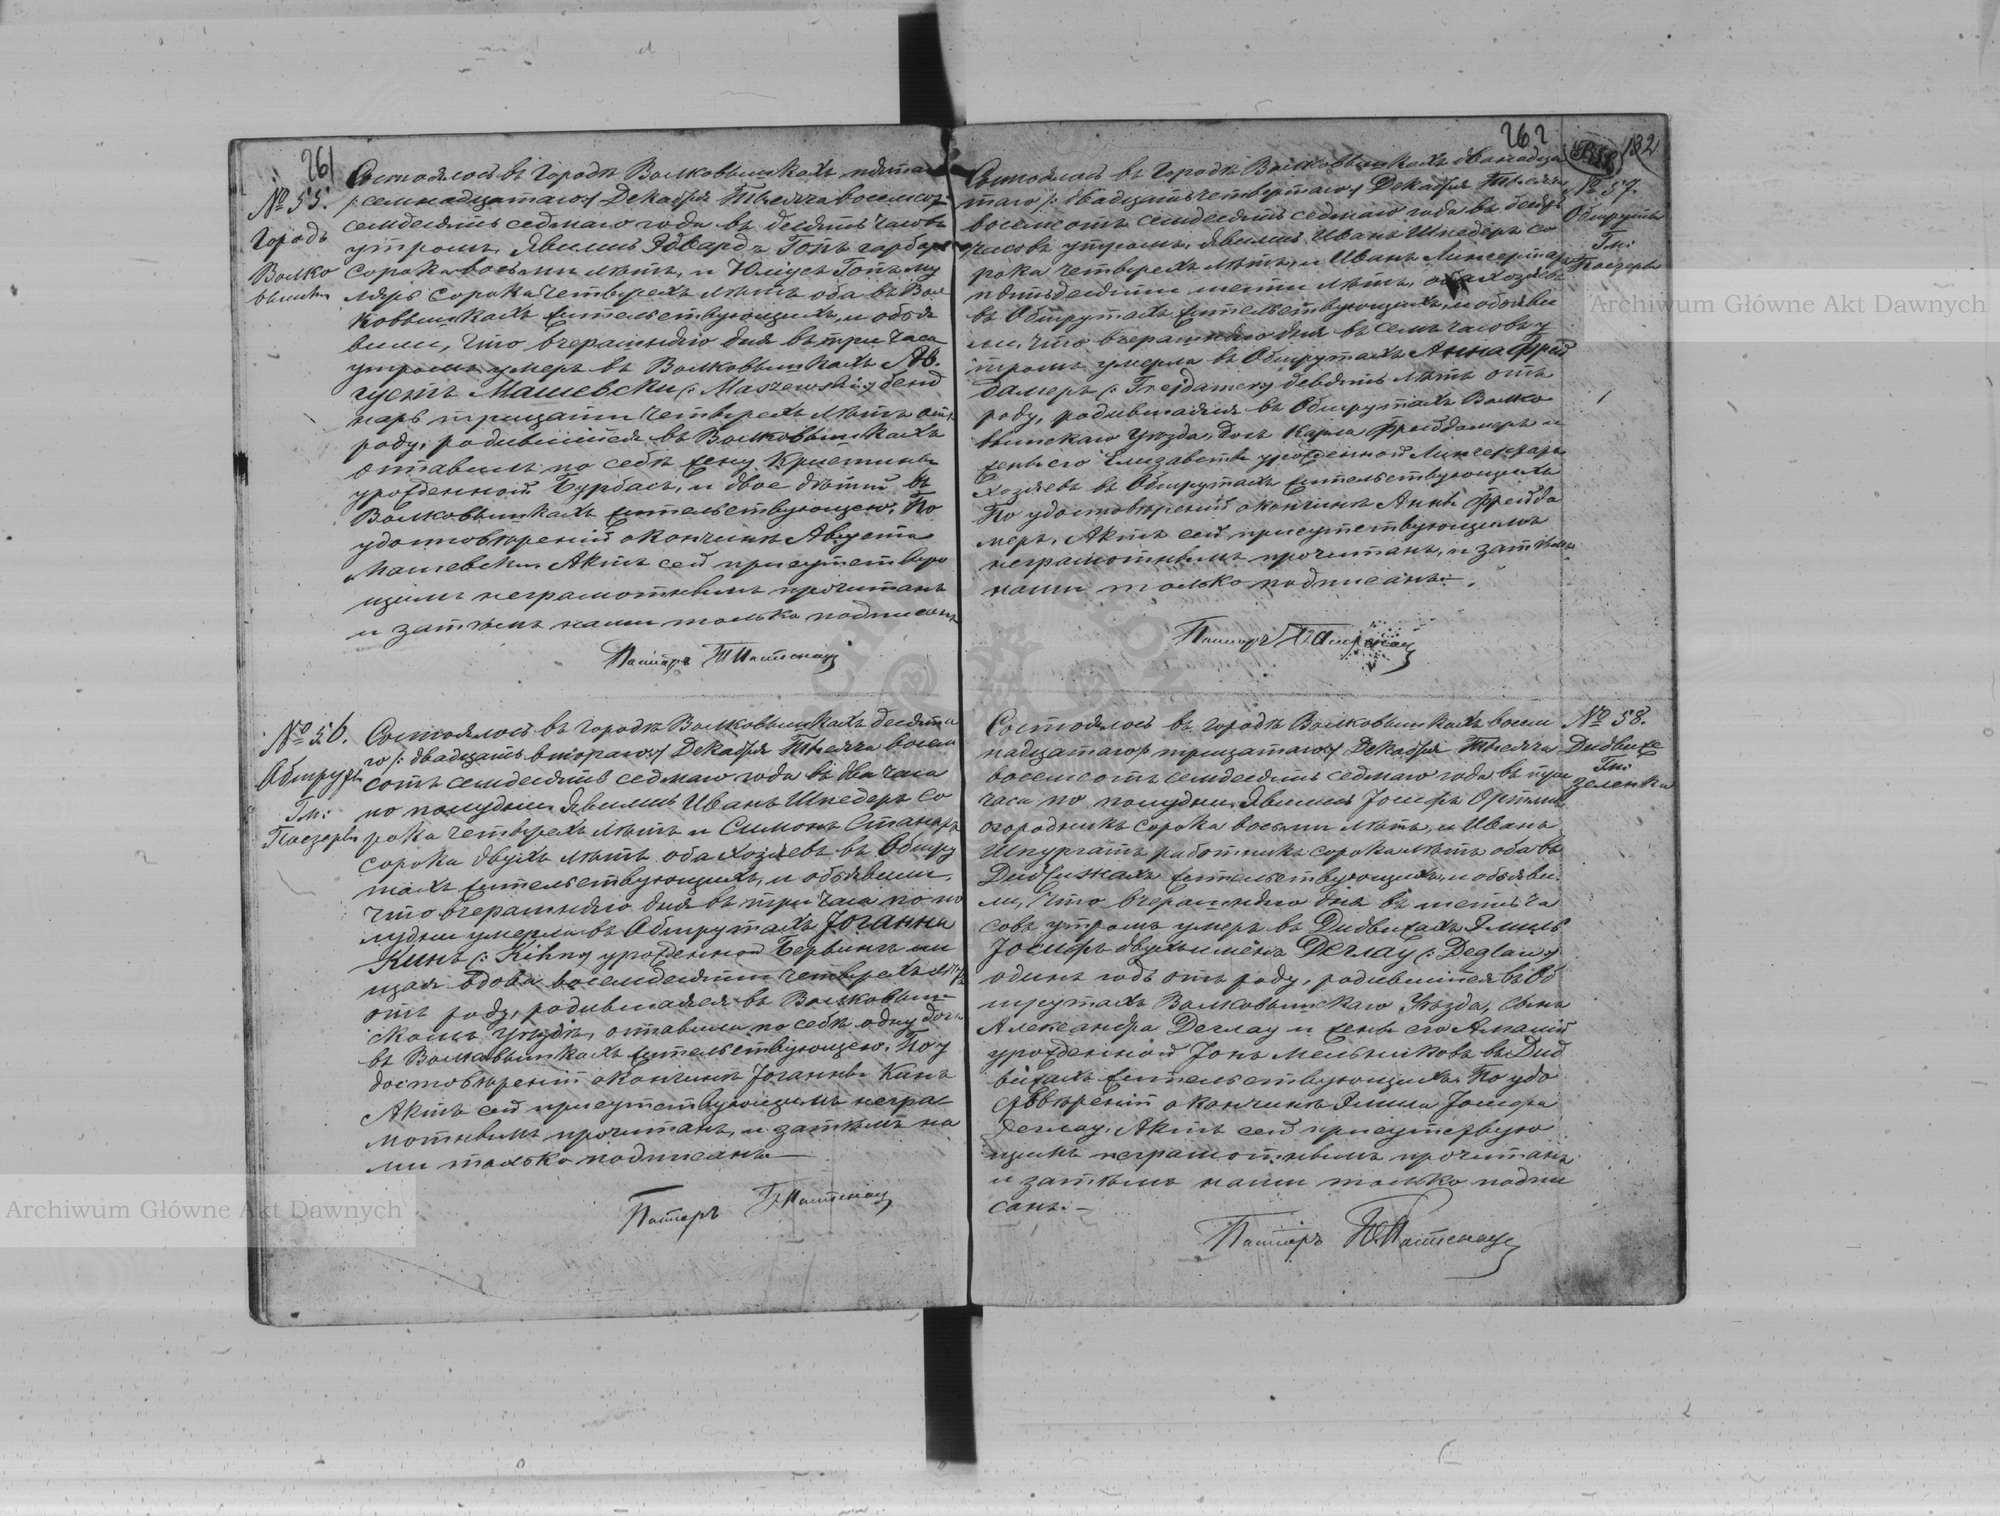 261
№ 55.
Городъ
Волко
вышки
Состоялось въ городѣ Волковышкахъ пята
/: семнадцатаго :/ Декабря Тысяча восемсотъ
семдесятъ седмаго года въ десять часовъ
утромъ. Явились Эдвардъ Гопъ гарбарь
сорока восьми лѣтъ, и Юліусъ Гопъ му
ляръ сорока четырехъ лѣтъ оба въ Вол
ковышкахъ жительствующихъ, и объя
вили, что вчерашняго дня въ три часа
утромъ умеръ въ Волковышкахъ Ав.
густъ Машевски /: Maszewski :/ бенд
нарь тридцати четырехъ лѣтъ отъ
роду, родившійся въ Волковышкахъ
оставилъ по себѣ жену Кристину
урожденной Бурбасъ, и двое дѣтей въ
Волковышкахъ жительствующею. По
удостовѣреніи о кончинѣ Августа
Машевски Актъ сей присутствую
щимъ неграмотнымъ прочитанъ
и затѣмъ нами только подписанъ
Пасторъ
№ 56.
Обшруты
Гм:
Поезеры
Состоялось въ городѣ Волковышкахъ десята
го /: двадцать втораго :/ Декабря Тысяча восем
сотъ семдесятъ седмаго года въ два часа
по полудни. Явились Иванъ Шнедеръ со
рока четырехъ лѣтъ и Симонъ Станаръ
сорока двухъ лѣтъ оба хозяевъ въ Обшру
тахъ жительствующихъ, и объявили,
что вчерашняго дня въ три часа по по
лудни умерла въ Обшрутахъ Іоганна
Кинъ /: Kihn :/ урожденной Бервингъ ни
щая вдова восемдесяти четырехъ лѣтъ
отъ роду, родившаяся въ Волковыш
скомъ уѣздѣ, оставила по себѣ одну дочь
въ Волковышкахъ жительствующею. По у
достовѣреніи о кончинѣ Іоганны Кинъ
Актъ сей присутствующимъ негра
мотнымъ прочитанъ, и затѣмъ на
ми только подписанъ
Пасторъ
262
132
№ 57.
Обшруты
Гм:
Поезеры
Состоялось въ городѣ Волковышкахъ двенадца
таго /: двадцать четвертаго :/ Декабря Тысяча
восемсотъ семдесятъ седмаго года въ десять
часовъ утромъ. Явились Иванъ Шнедеръ со
рока четырехъ лѣтъ, и Иванъ
пятьдесяти шести лѣтъ, оба хозяевъ
въ Обшрутахъ жительствующихъ, и объяви
ли, что вчерашняго дня въ семь часовъ у
тромъ умерла въ Обшрутахъ Анна Фрей
дамеръ /: Frejdamer :/ девять лѣтъ отъ
роду, родившаяся въ Обшрутахъ Волко
вышскаго уѣзда, дочь Карла Фрейдамеръ и
жены его Елизаветы урожденной
хозяевъ въ Обшрутахъ жительствующихъ
По удостовѣреніи о кончинѣ Анны Фрейда
меръ, Актъ сей присутствующимъ
неграмотнымъ прочитанъ, и затѣмъ
нами только подписанъ.
Пасторъ
№ 58.
Дидвиже
Гм:
Зеленка
Состоялось въ городѣ Волковышкахъ восем
надцатаго /: тридцатаго :/ Декабря Тысяча
восемсотъ семдесятъ седмаго года въ три
часа по полудни. Явились Іосифъ
огородникъ сорока восьми лѣтъ, и Иванъ
Шпургатъ работникъ сорока лѣтъ оба въ
Дидвижахъ жительствующихъ, и объяви
ли, что вчерашняго дня въ шесть ча
совъ утромъ умеръ въ Дидвижахъ Эмиль
Іосифъ двухъ имёнъ Деглау /: Deglau :/
одинъ годъ отъ роду, родившійся въ Об
шрутахъ Волковышскаго Уѣзда, сынъ
Александра Деглау и жены его Амаліи
урожденной Іонъ мельниковъ въ Дид
вижахъ жительствующихъ. По удо
стовѣреніи о кончинѣ Эмиля Іосифа
Деглау, Актъ сей присутствую
щимъ неграмотнымъ прочитанъ
и затѣмъ нами только подпи
санъ.
Пасторъ
Archiwum Główne Akt Dawnych
Archiwum Główne Akt Dawnych